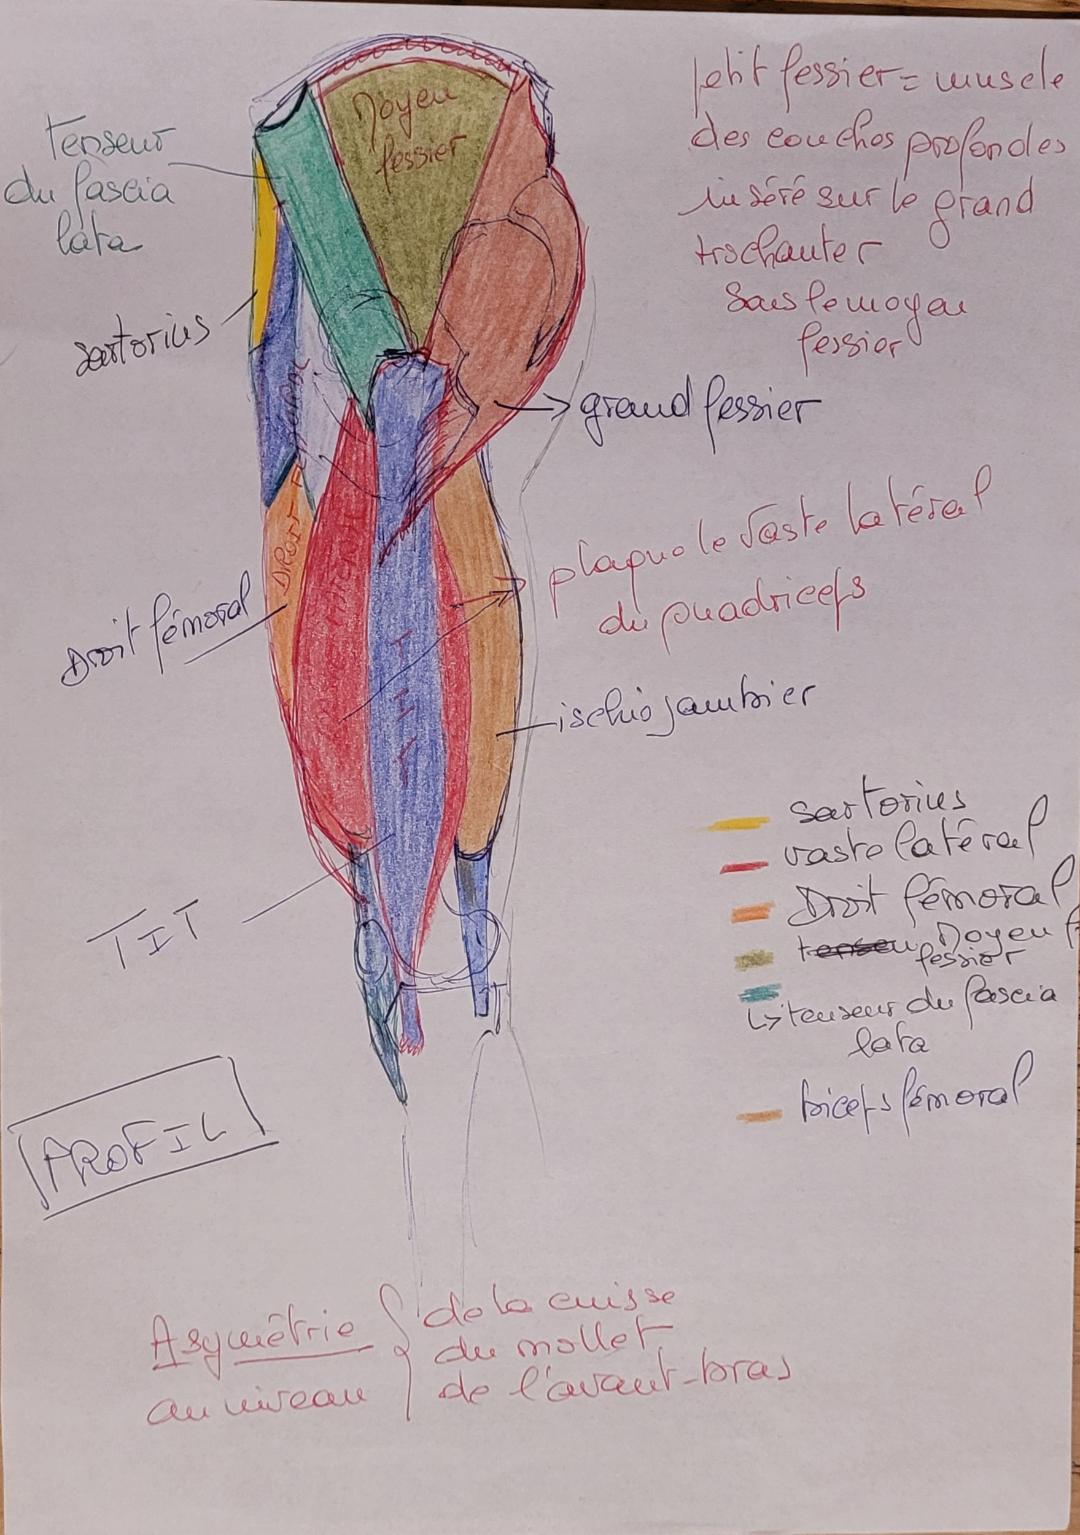 petit fessier = muscle
des couches profondes
inséré sur le grand
trochanter
sous le moyen
fessier
Moyen
fessier
tenseur
du fascia
lata
sartorius
grand fessier
plaque le vaste latéral
du quadriceps
DROIT
Droit fémoral
TIT
ischio jambier
TIT
sartorius
vaste latéral
Droit fémoral
Moyen
fessier
↳ tenseur du fascia
lata
biceps fémoral
PROFIL
Asymétrie
au niveau
de la cuisse
du mollet
de l'avant-bras